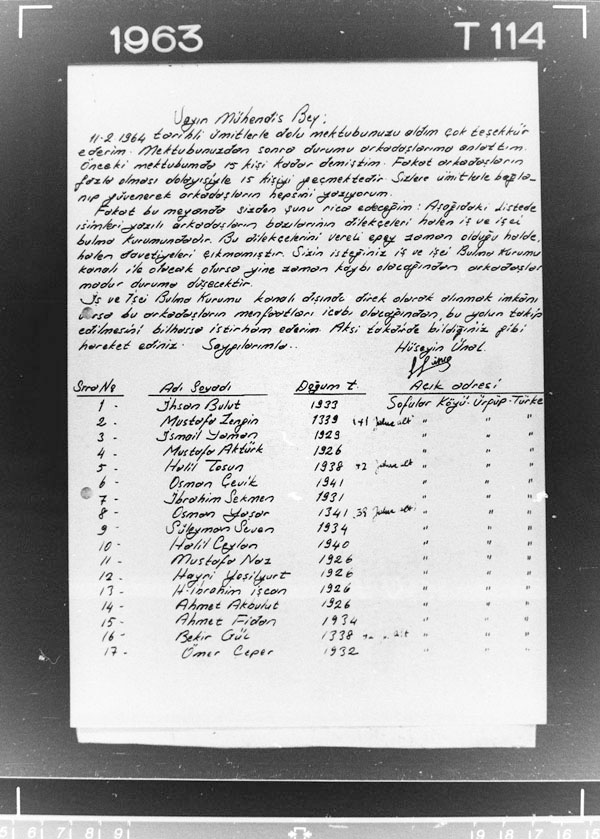 1963 T 114
Sayın Mühendis Bey;
11.2.1964 tarihli ümitlerle dolu mektubunuzu aldım çok teşekkür
ederim. Mektubunuzdan sonra durumu arkadaşlarıma anlattım.
Önceki mektubumda 15 kişi kadar demiştim. Fakat arkadaşların
fazla olması dolayısiyle 15 kişiyi geçmektedir. Sizlere ümitlale bağla-
nıp güvenerek arkadaşların hepsini yazıyorum.
Fakat bu meyanda sizden şunu rica edeceğim: Aşağıdaki listede
isimleri yazılı arkadaşların bazılarının dilekçeleri halen iş ve işçi
bulma kurumundadır. Bu dilekçelerini vereli epey zaman olduğu halde,
halen davetiyeleri çıkmamıştır. Sizin isteğiniz iş ve işçi Bulma Kurumu
kanalı ile olacak olursa yine zaman kaybı olacağından arkadaşlar
mağdur duruma düşecektir.
İş ve İşçi Bulma Kurumu kanalı dışında direk olarak alınmak imkânı
varsa bu arkadaşların menfaatları icabı olacağından, bu yolun takip
edilmesini bilhassa istirham ederim. Aksi takdirde bildiğiniz gibi
hareket ediniz. Saygılarımla..
Hüseyin Ünal.
Sıra No Adı Soyadı Doğum t. Açık adresi
1 - İhsan Bulut 1933 Sofular Köyü-Ürgüp-Türke
2 - Mustafa Zengin 1339 " " "
3 - İsmail Yaman 1929 " " "
4 - Mustafa Aktürk 1926 " " "
5 - Halil Tosun 1938 " " "
6 - Osman Çevik 1941 " " "
7 - İbrahim Sekmen 1931 " " "
8 - Osman Yaşar 1341 " " "
9 - Süleyman Seven 1934 " " "
10 - Halil Ceylan 1940 " " "
11 - Mustafa Naz 1926 " " "
12 - Hayri Yeşilyurt 1926 " " "
13 - H. İbrahim İşcan 1926 " " "
14 - Ahmet Akbulut 1926 " " "
15 - Ahmet Fidan 1934 " " "
16 - Bekir Gül 1338 " " "
17 - Ömer Çeper 1932 " " "
5 6 7 8 9 19 18 17 16 15